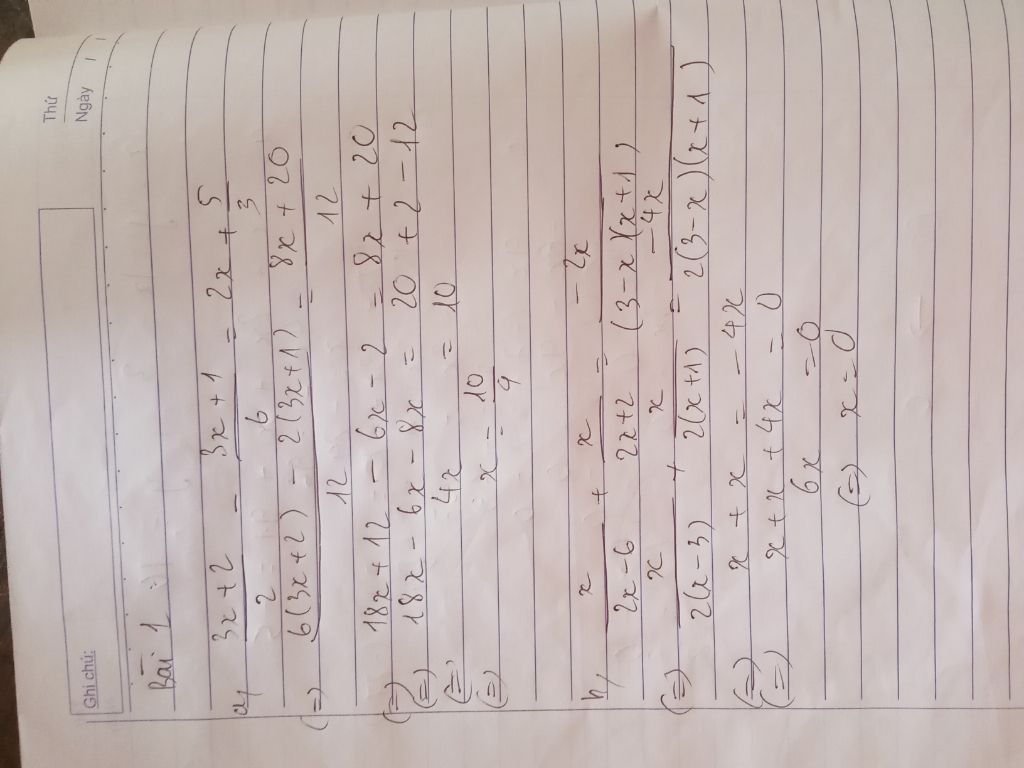 Thứ
Ngày
Ghi chú:
Bài 1
a, (3x+2)/2 - (3x+1)/6 = 2x + 5/3
(=) (6(3x+2) - 2(3x+1))/12 = (8x+20)/12
(=) 18x+12 - 6x-2 = 8x+20
(=) 18x - 6x - 8x = 20+2-12
(=) 4x = 10
(=) x = 10/9
b, x/(2x-6) + x/(2x+2) = -2x/((3-x)(x+1))
(=) x/(2(x-3)) + x/(2(x+1)) = -4x/(2(3-x)(x+1))
(=) x + x = -4x
(=) x+x+4x = 0
6x = 0
(=) x=0